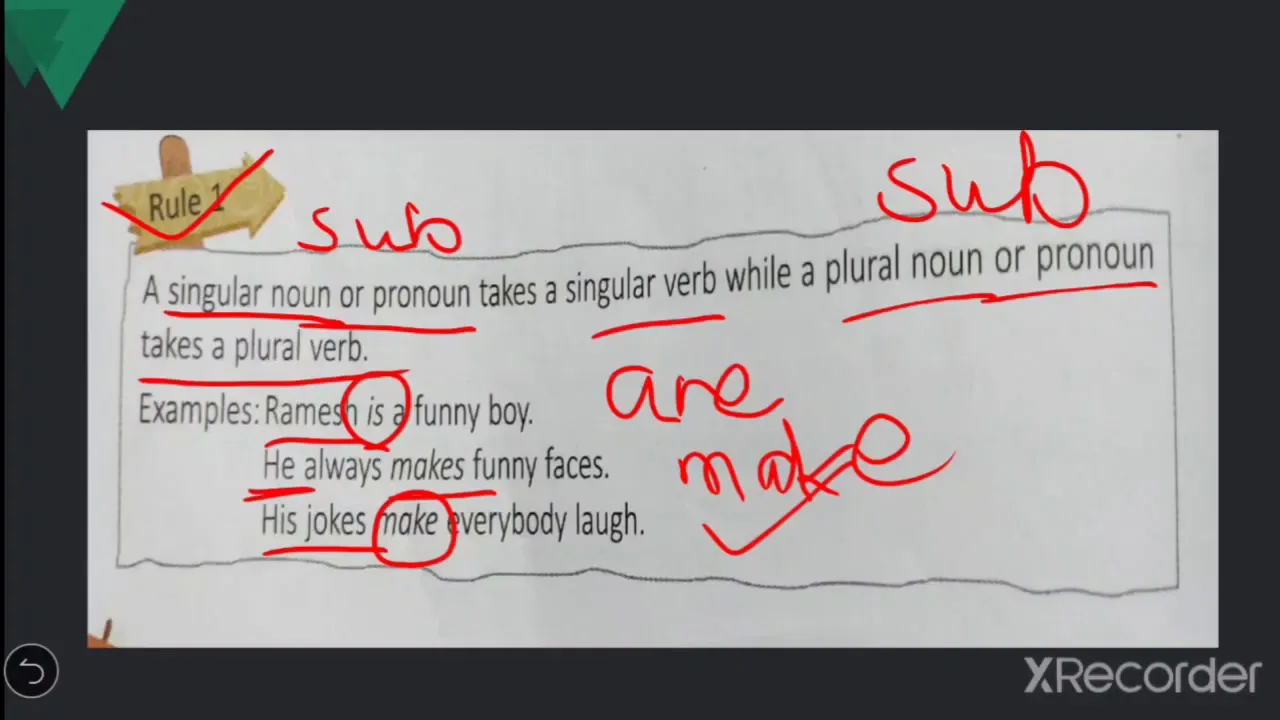 Rule 1
sub
sub
A singular noun or pronoun takes a singular verb while a plural noun or pronoun
takes a plural verb.
are
Examples: Ramesh is a funny boy.
make
He always makes funny faces.
His jokes make everybody laugh.
XRecorder